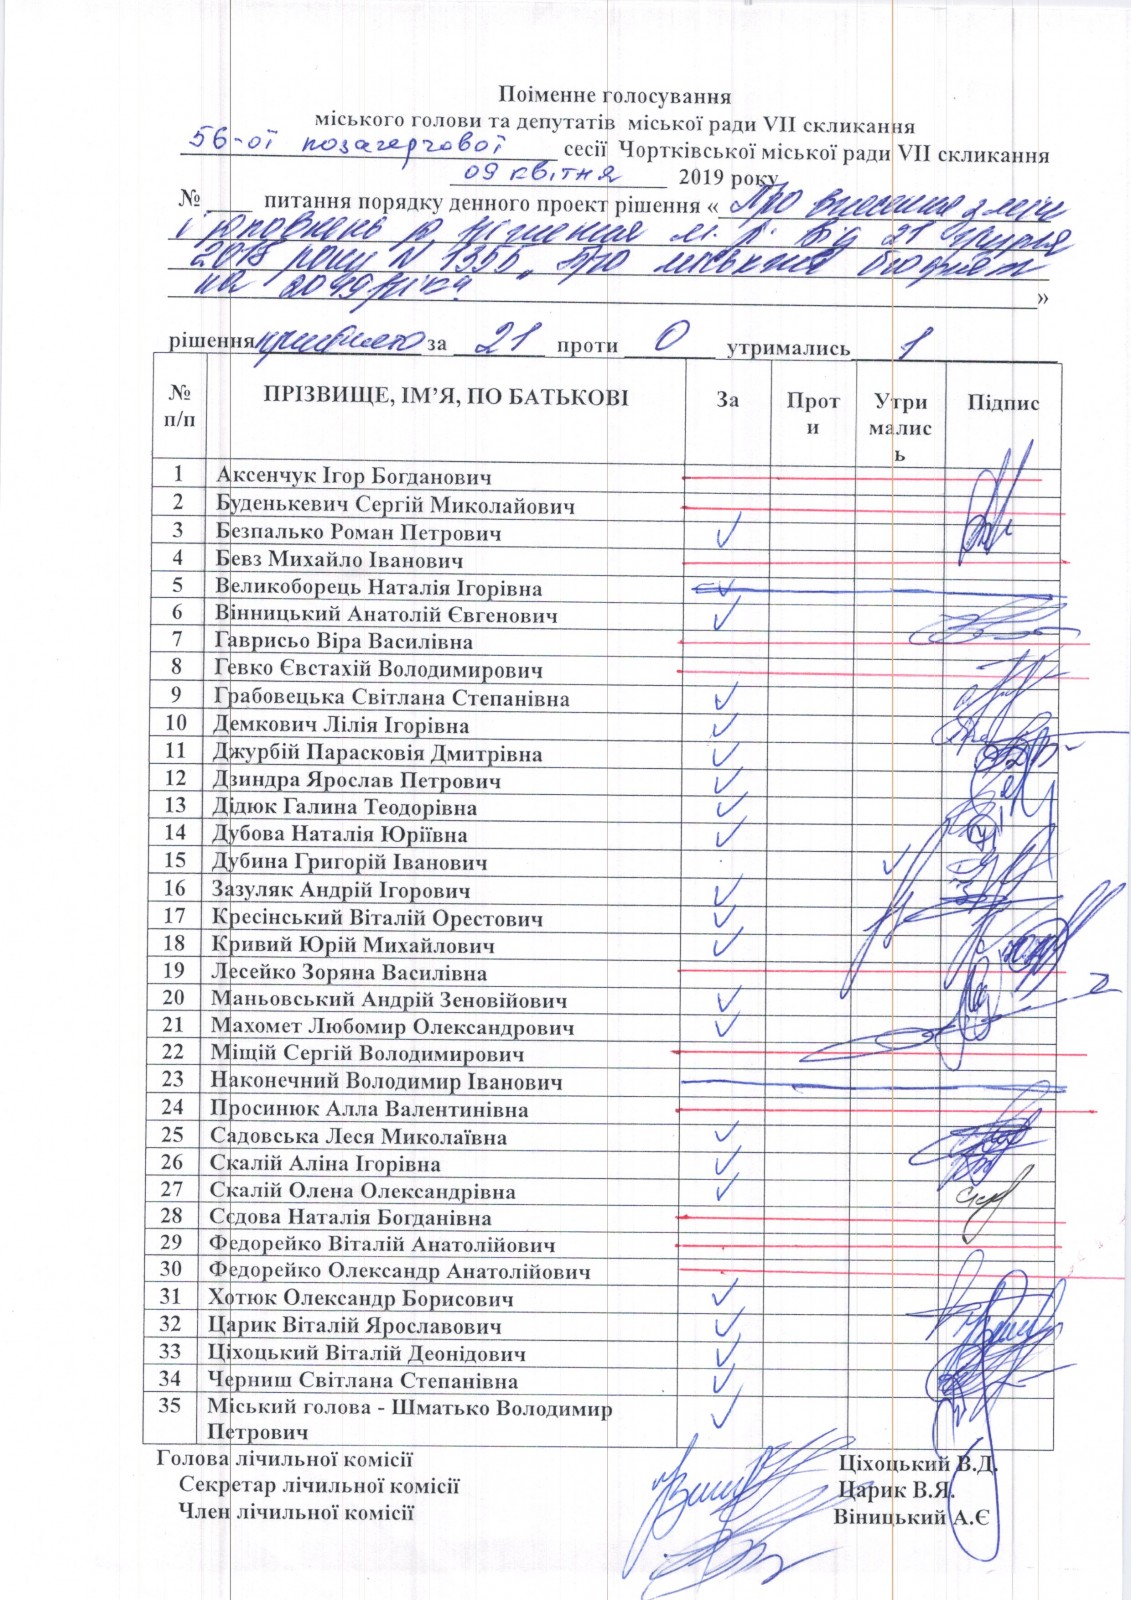 Поіменне голосування
міського голови та депутатів міської ради VII скликання
56-ої позачергової сесії Чортківської міської ради VII скликання
09 квітня 2019 року
№ ____ питання порядку денного проект рішення « Про внесення змін
і доповнень до рішення м. р. від 21 грудня
2018 року № 1355 „Про міський бюджет
на 2019 рік" »
рішення прийнято за 21 проти 0 утримались 1
№ п/п ПРІЗВИЩЕ, ІМ’Я, ПО БАТЬКОВІ За Прот и Утри малис ь Підпис
1 Аксенчук Ігор Богданович
2 Буденькевич Сергій Миколайович
3 Безпалько Роман Петрович ✓
4 Бевз Михайло Іванович
5 Великоборець Наталія Ігорівна
6 Вінницький Анатолій Євгенович ✓
7 Гаврисьо Віра Василівна
8 Гевко Євстахій Володимирович
9 Грабовецька Світлана Степанівна ✓
10 Демкович Лілія Ігорівна ✓
11 Джурбій Парасковія Дмитрівна ✓
12 Дзиндра Ярослав Петрович ✓
13 Дідюк Галина Теодорівна ✓
14 Дубова Наталія Юріївна ✓
15 Дубина Григорій Іванович ✓
16 Зазуляк Андрій Ігорович ✓
17 Кресінський Віталій Орестович ✓
18 Кривий Юрій Михайлович ✓
19 Лесейко Зоряна Василівна
20 Маньовський Андрій Зеновійович ✓
21 Махомет Любомир Олександрович ✓
22 Міщій Сергій Володимирович
23 Наконечний Володимир Іванович
24 Просинюк Алла Валентинівна
25 Садовська Леся Миколаївна ✓
26 Скалій Аліна Ігорівна ✓
27 Скалій Олена Олександрівна ✓
28 Сєдова Наталія Богданівна
29 Федорейко Віталій Анатолійович
30 Федорейко Олександр Анатолійович
31 Хотюк Олександр Борисович ✓
32 Царик Віталій Ярославович ✓
33 Ціхоцький Віталій Деонідович ✓
34 Черниш Світлана Степанівна ✓
35 Міський голова - Шматько Володимир ✓
Петрович
Голова лічильної комісії Ціхоцький В.Д.
Секретар лічильної комісії Царик В.Я.
Член лічильної комісії Віницький А.Є